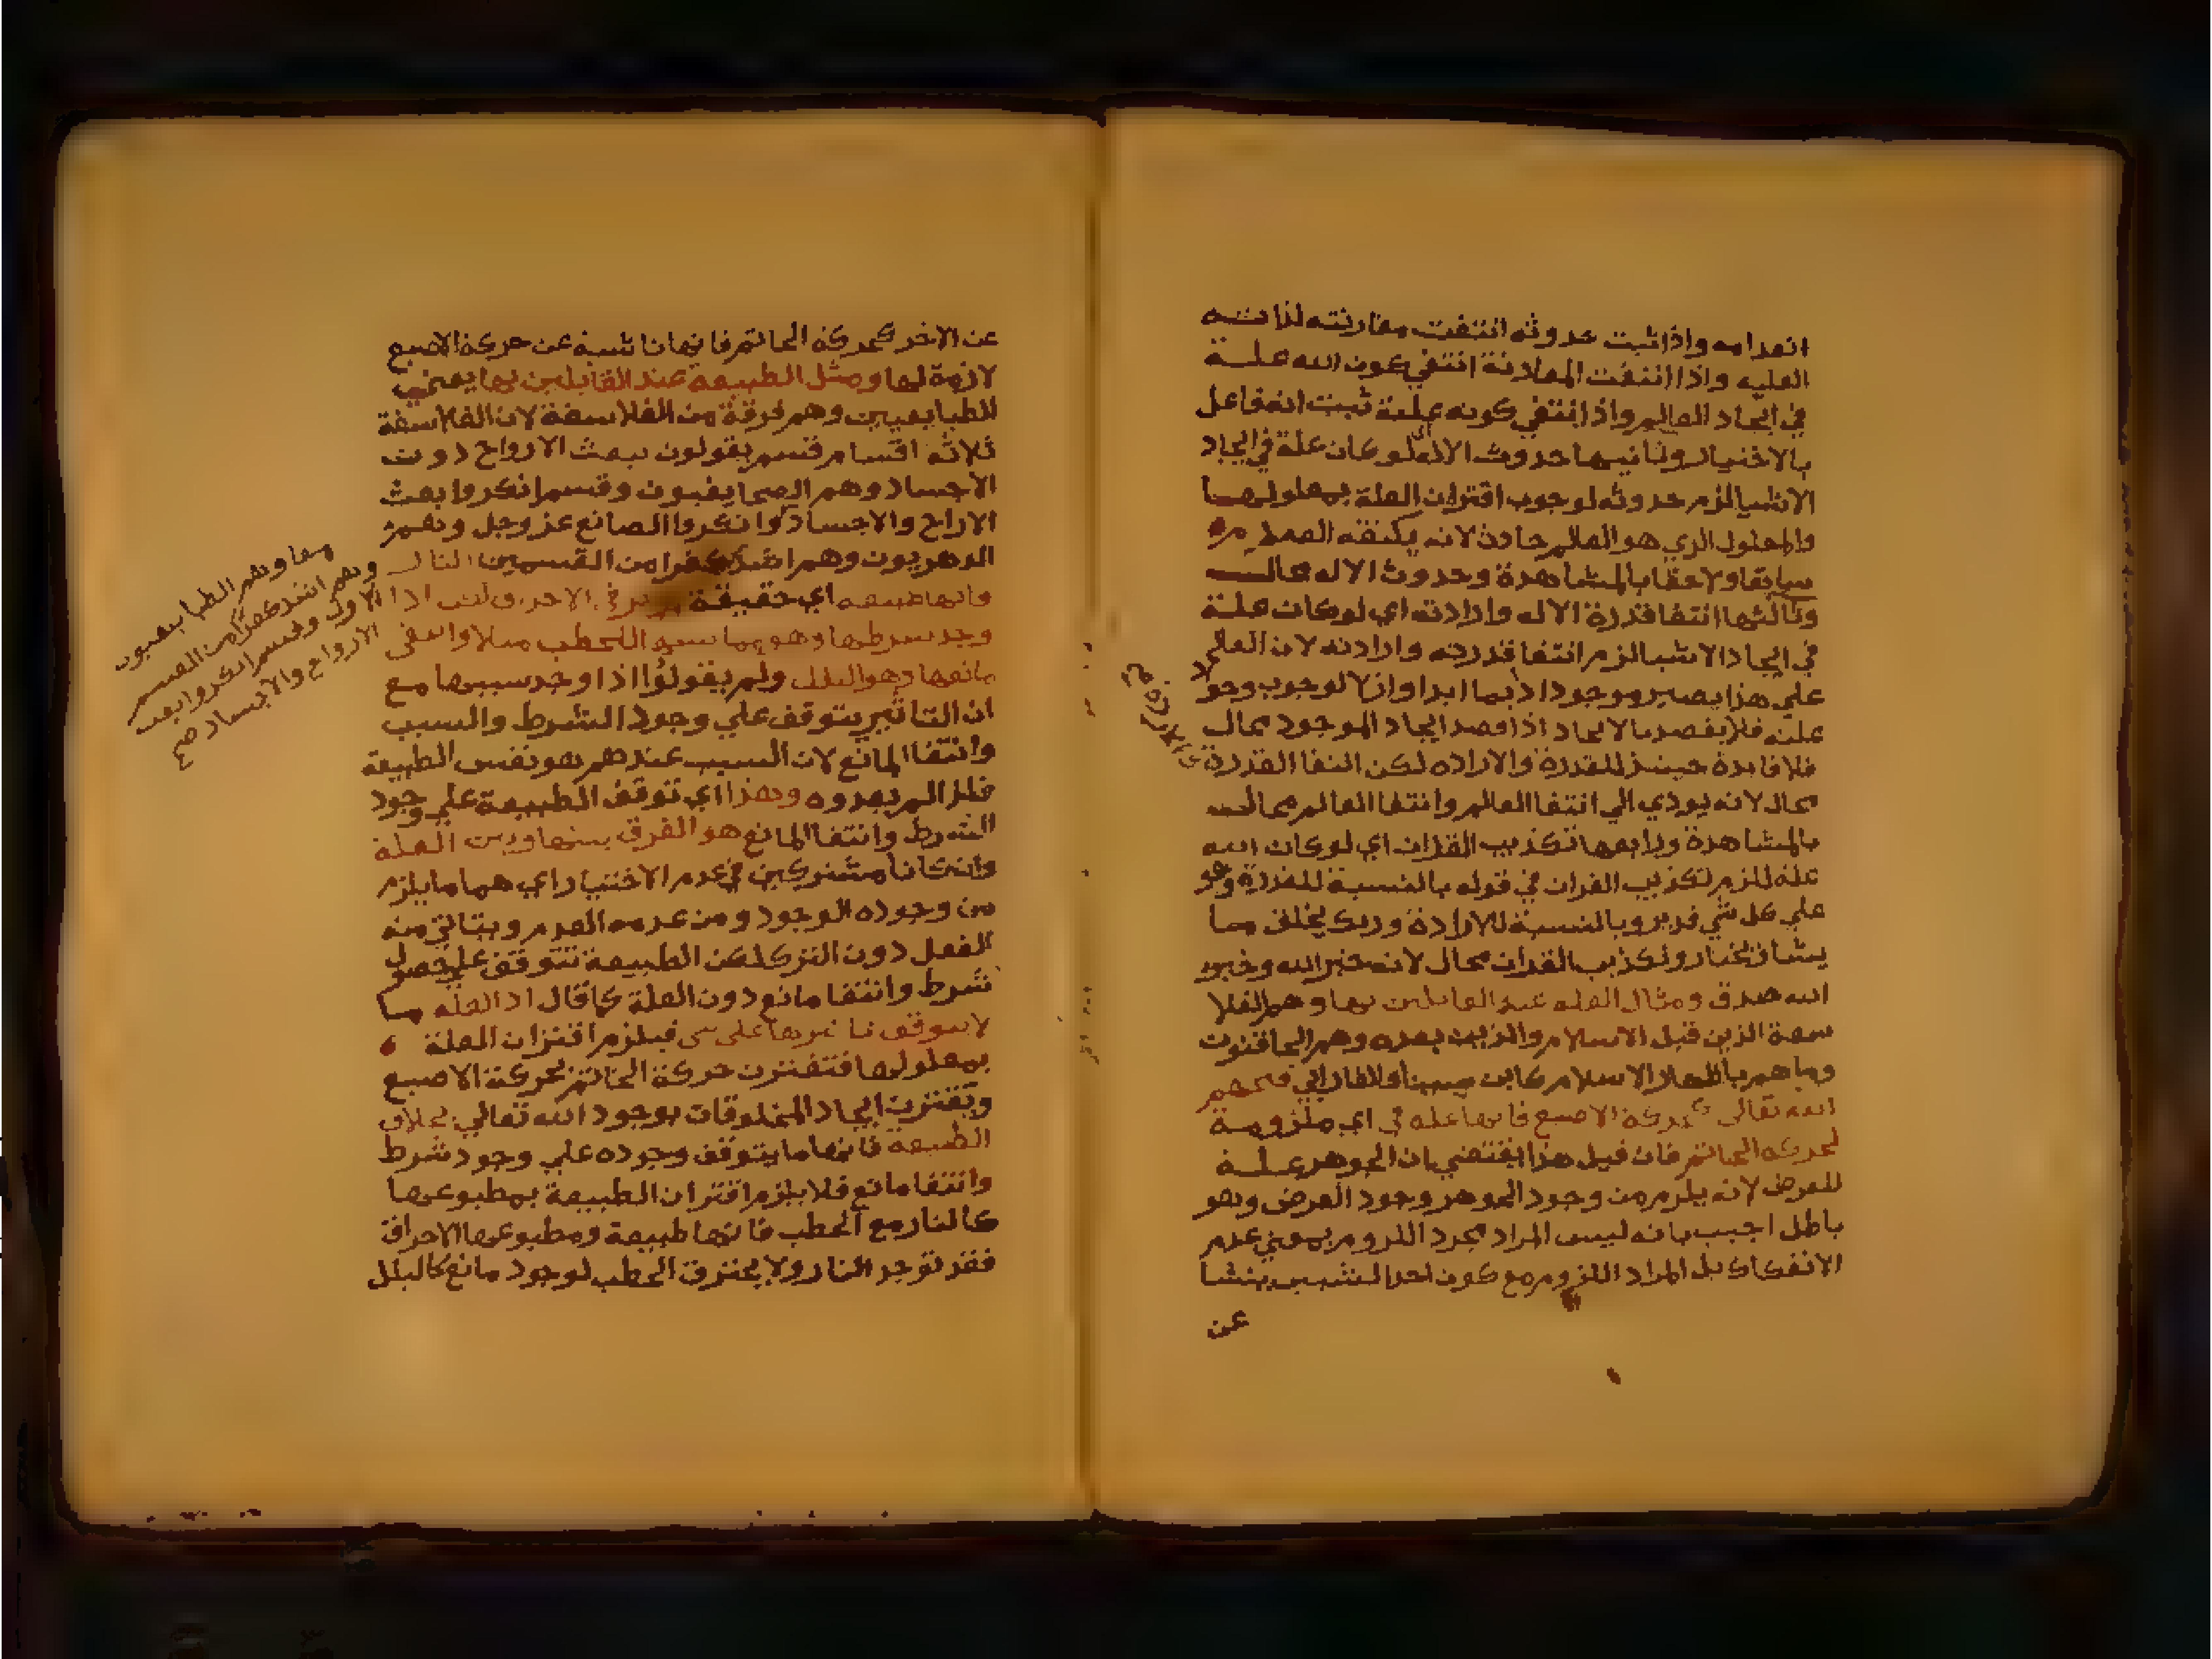 انعدامه واذا ثبت حدوثه انتفت مقارنته لذاته
العليه واذا انتفت المقارنة انتفي كون الله علة
في ايجاد العالم واذا انتفي كونه علة ثبت انه فاعل
بالاختيار وثانيها حدوث الاله اي لو كان علة في ايجاد
الاشيا لزم حدوثه لوجوب اقتران العلة بمعلولها
والمعلول الذي هو العالم حادث لانه يكتنفه العدم
سابقا ولاحقا بالمشاهدة وحدوث الاله محال
وثالثها انتفا قدرة الاله وارادته اي لو كان علة
في ايجاد الاشيا لزم انتفا قدرته وارادته لان العالم
علي هذا يصير موجودا دايما ابدا وازلا لوجوب وجود
علته فلا يقصد بالايجاد اذا قصد ايجاد الموجود محال
فلا فايدة حينئذ للقدرة والاراده لكن انتفا القدرة
محال لانه يودي الي انتفا العالم وانتفا العالم محال
بالمشاهدة ورابعها تكذيب القران اي لو كان الله
علة للزم تكذيب القران في قوله بالنسبة للقدرة وهو
علي كل شي قدير وبالنسبة للارادة وربك يخلق ما
يشا ويختار وتكذيب القران محال لانه خبر الله وخبر
الله صدق ومثال العله عند القايلين بها وهم الفلا
سفة الذين قبل الاسلام والذين بعده وهم الخافنون
وما هم باهل الاسلام كابن سينا والفارابي قبحهم
الله تعالى كحركة الاصبع فانها علة في اي ملزومة
لحركة الخاتم فان قيل هذا يقتضي ان الجوهر علة
للعرض لانه يلزم من وجود الجوهر وجود العرض وهو
باطل اجيب بانه ليس المراد مجرد اللزوم بمعني عدم
الانفكاك بل المراد اللزوم مع كون احد الشيين ينشا
عن
عن الاخر كحركة الخاتم فانها ناشية عن حركة الاصبع
لازمة لها ومثل الطبيعة عند القايلين بها يعني
الطبايعيين وهم فرقة من الفلاسفة لان الفلاسفة
ثلاثة اقسام قسم يقولون ببعث الارواح دون
الاجساد وهم الصحايفيون وقسم انكروا بعث
الاراح والاجساد وانكروا الصانع عز وجل وهم
الدهريون وهم اشد كفرا من القسمين النار
فانها طبيعه اي حقيقة توثر في الاحراق لكن اذا
وجد شرطها وهو مماسة الحطب مثلا وانتفى
مانعها وهو البلل ولم يقولوا اذا وجد سببها مع
ان التاثير يتوقف علي وجود الشرط والسبب
وانتفا المانع لان السبب عندهم هو نفس الطبيعة
فلذا لم يعدوه وهذا اي توقف الطبيعة علي وجود
الشرط وانتفا المانع هو الفرق بينها وبين العلة
وان كانا مشتركين في عدم الاختيار اي هما ما يلزم
من وجوده الوجود ومن عدمه العدم ويتاتي منه
الفعل دون الترك لكن الطبيعة تتوقف علي حصول
شرط وانتفا مانع دون العلة كما قال اذ العله ما
لا يتوقف تاثيرها على شي فيلزم اقتران العلة
بمعلولها فتقترن حركة الخاتم بحركة الاصبع
ويقترن ايجاد المخلوقات بوجود الله تعالي بخلاف
الطبيعة فانها ما يتوقف وجوده علي وجود شرط
وانتفا مانع فلا يلزم اقتران الطبيعة بمطبوعها
كالنار مع الحطب فانها طبيعة ومطبوعها الاحراق
فقد توجد النار ولا يحترق الحطب لوجود مانع كالبلل
معا وهم الطبايعيون
وهم اشد كفرا من القسم
الاول وقسم انكروا بعث
الارواح والاجساد صح